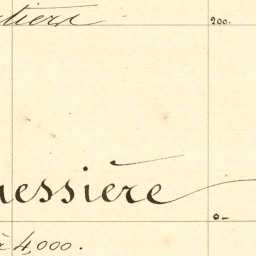 tiers 200.
nessière 0
à 4,000.